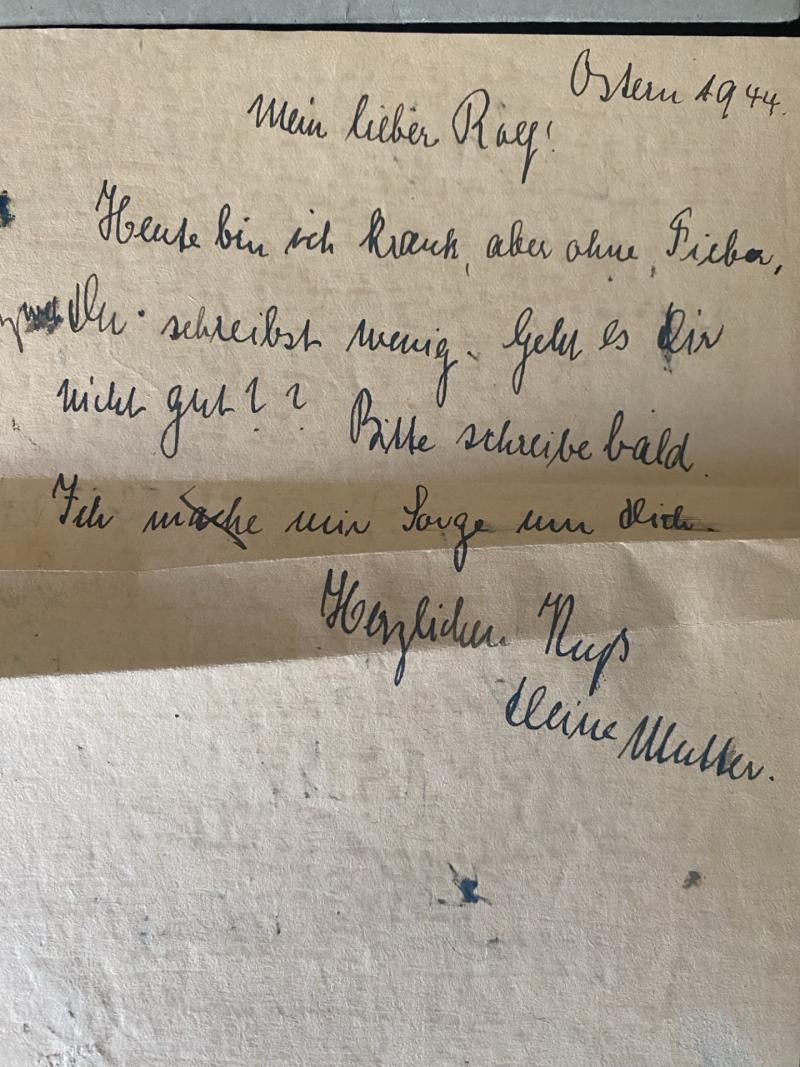 Ostern 1944.
Mein lieber Rolf!
Heute bin ich krank, aber ohne Fieber,
Du schreibst wenig. Geht es Dir
nicht gut??  Bitte schreibe bald.
Ich mache mir Sorge um Dich.
Herzlichen Kuß
Deine Mutter.